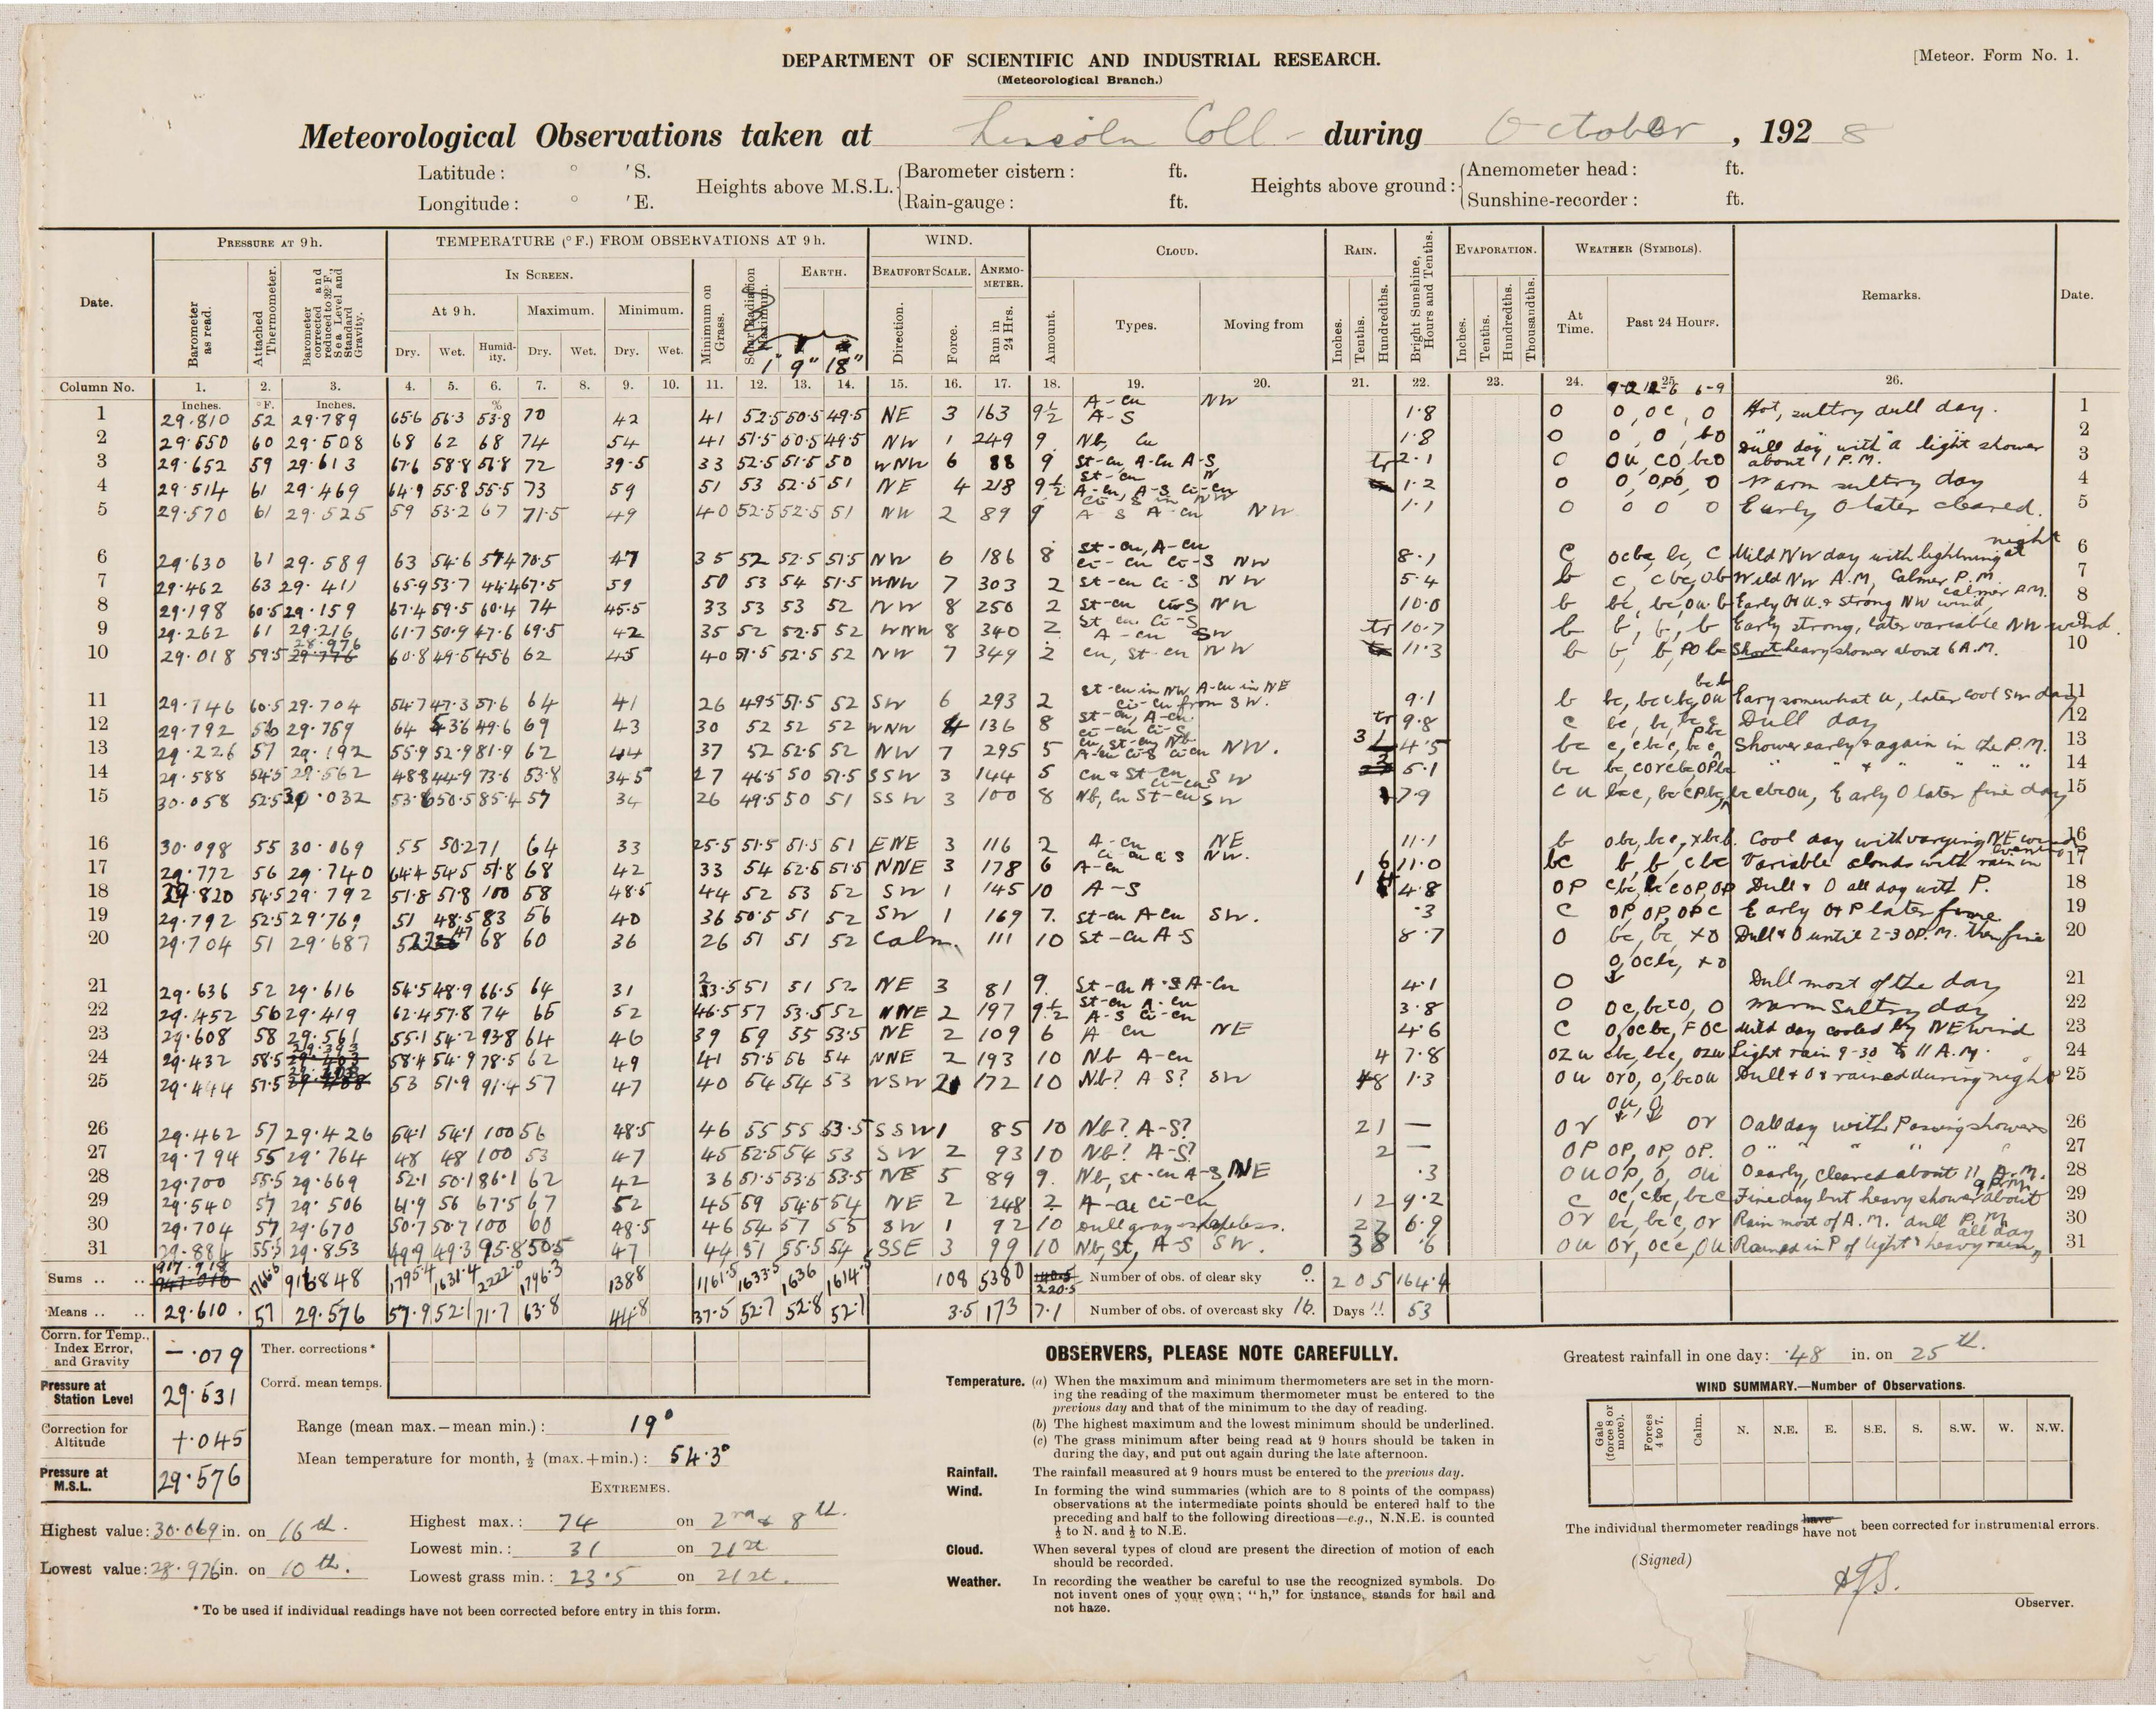 DEPARTMENT OF SCIENTIFIC AND INDUSTRIAL RESEARCH.
[Meteor. Form No. 1.
(Meteorological Branch.)
Meteorological Observations taken at Lincoln Coll - during October, 1928
Latitude: ° ' S. Heights above M.S.L. Barometer cistern: ft. Heights above ground: Anemometer head: ft.
Longitude: ° ' E. Rain-gauge: ft. Sunshine-recorder: ft.
Date. PRESSURE AT 9 h. TEMPERATURE (° F.) FROM OBSERVATIONS AT 9 h. WIND. CLOUD. RAIN. Bright Sunshine, Hours and Tenths. EVAPORATION. WEATHER (SYMBOLS). Remarks. Date.
Barometer as read. Attached Thermometer. Barometer corrected and reduced to 32° F., Sea Level and Standard Gravity. IN SCREEN. Minimum on Grass. Solar Radiation Maximum. EARTH. BEAUFORT SCALE. ANEMOMETER.
At 9 h. Maximum. Minimum. Direction. Force. Run in 24 Hrs. Amount. Types. Moving from Inches. Tenths. Hundredths. Inches. Tenths. Hundredths. Thousandths. At Time. Past 24 Hours.
Dry. Wet. Humidity. Dry. Wet. Dry. Wet. 1" 9" 18"
Column No. 1. 2. 3. 4. 5. 6. 7. 8. 9. 10. 11. 12. 13. 14. 15. 16. 17. 18. 19. 20. 21. 22. 23. 24. 25. 26.
Inches. °F. Inches. % 6-9
1 29.810 52 29.789 65.6 56.3 53.8 70 42 41 52.5 50.5 49.5 NE 3 163 9½ A-cu A-S NW 1.8 O O, oc, O Hot, sultry dull day. 1
2 29.550 60 29.508 68 62 68 74 54 41 51.5 50.5 49.5 NW 1 249 9 Nb, Cu 1.8 O O, O, bO 2
3 29.652 59 29.613 67.6 58.8 57.8 72 39.5 33 52.5 51.5 50 WNW 6 88 9 St-cu, A-Cu A-S tr 2.1 O OU, CO, bcO Dull day, with a light shower about 1 P.M. 3
4 29.514 61 29.469 64.9 55.8 55.5 73 59 51 53 52.5 51 NE 4 218 9½ St-cu A-cu, A-S Ci-Cu N 1.2 O O, OPO, O Warm sultry day 4
5 29.570 61 29.525 59 53.2 67 71.5 49 40 52.5 52.5 51 NW 2 89 9 A-S A-cu NW 1.1 O O O O Early O later cleared. 5
6 29.630 61 29.589 63 54.6 57.4 70.5 47 35 52 52.5 51.5 NW 6 186 8 St-cu, A-cu ci-cu Ci-S NW 8.1 C ocbc, bc, C Mild NW day with lightning at night 6
7 29.462 63 29.411 65.9 53.7 44.4 67.5 59 50 53 54 51.5 WNW 7 303 2 St-cu Ci-S NW 5.4 b c, cbc, Ob Wild NW A.M, Calmer P.M. 7
8 29.198 60.5 29.159 67.4 59.5 60.4 74 45.5 33 53 53 52 NW 8 250 2 St-cu Ci-S NW 10.0 b bc, bc, ou b Early O & U. & strong NW wind, calmer P.M. 8
9 29.262 61 29.216 61.7 50.9 47.6 69.5 42 35 52 52.5 52 WNW 8 340 2 St cu Ci-S A-cu SW tr 10.7 b b, b, b Early strong, later variable NW wind. 9
10 29.018 59.5 28.976 60.8 49.5 45.6 62 45 40 51.5 52.5 52 NW 7 349 2 cu, St-cu NW 11.3 b b, b, PO bc Short heavy shower about 6 A.M. 10
11 29.746 60.5 29.704 54.7 47.3 57.6 64 41 26 49.5 51.5 52 SW 6 293 2 St-cu in NW, A-cu in NE ci-cu from SW. 9.1 b bc, bcc bc, OU bcb Early somewhat u, later cool Sw day 11
12 29.792 56 29.759 64 53.6 49.6 69 43 30 52 52 52 WNW 4 136 8 St-cu, A-cu ci-cu ci-S tr 9.8 c bc, bc, bc c Dull day 12
13 29.226 57 29.192 55.9 52.9 81.9 62 44 37 52 52.5 52 NW 7 295 5 cu, St-cu, Nb A-cu Ci-S Ci-cu NW. 31 4.5 bc c, cbc, bc c, Pbc Shower early & again in the P.M. 13
14 29.588 54.5 29.562 48.8 44.9 73.6 53.8 34.5 27 46.5 50 51.5 SSW 3 144 5 Cu & St-cu ci-cu SW 5.1 bc bc, corcbc, OPbc " " " " " " 14
15 30.058 52.5 30.032 53.8 50.5 85.4 57 34 26 49.5 50 51 SSW 3 100 8 Nb, Cu St-cu SW 7.9 c u bcc, bc cPbc, bc cbcou, Early O later fine day 15
16 30.098 55 30.069 55 50.2 71 64 33 25.5 51.5 51.5 51 ENE 3 116 2 A-cu NE 11.1 b obc, bcc, xbcb. Cool day with varying NE wind 16
17 29.772 56 29.740 64.4 54.5 51.8 68 42 33 54 52.5 51.5 NNE 3 178 6 ci-cu ci S A-cu NW. 6 11.0 bc b, b, c bc Variable clouds with rain in evening 17
18 29.820 54.5 29.792 51.8 51.8 100 58 48.5 44 52 53 52 SW 1 145 10 A-S 4.8 OP cbc, bc c OP, OP Dull & O all day with P. 18
19 29.792 52.5 29.769 51 48.5 83 56 40 36 50.5 51 52 SW 1 169 7. St-cu A cu SW. .3 C OP, OP, OPC Early O & P later fine. 19
20 29.704 51 29.687 52 47 68 60 36 26 51 51 52 Calm. 111 10 St-Cu A-S 8.7 O bc, bc, XO Dull & O until 2-30 P.M. then fine 20
21 29.636 52 29.616 54.5 48.9 66.5 64 31 23.5 51 51 52 NE 3 81 9. St-cu A-S A-Cu 4.1 O O, ocbc, XO Dull most of the day 21
22 29.452 56 29.419 62.4 57.8 74 65 52 46.5 57 53.5 52 NNE 2 197 9½ St-cu A-cu A-S Ci-cu 3.8 O Oc, bcco, O Warm Sultry day 22
23 29.608 58 29.561 55.1 54.2 93.8 64 46 39 59 55 53.5 NE 2 109 6 A cu NE 4.6 C O, ocbc, FOC Mild day cooled by NE wind 23
24 29.432 58.5 29.393 58.4 54.9 78.5 62 49 41 57.5 56 54 NNE 2 193 10 Nb A-cu 4 7.8 OZ U cbc, bcc, OZU Light rain 9-30 to 11 A.M. 24
25 29.444 57.5 53 51.9 91.4 57 47 40 54 54 53 WSW 2 172 10 Nb? A-S? SW 48 1.3 O U oro, o, bcou Dull & O & rained during night 25
26 29.462 57 29.426 54.1 54.1 100 56 48.5 46 55 55 53.5 SSW 1 85 10 Nb? A-S? 21 — Or OU, O or O all day with Passing showers 26
27 29.794 55 29.764 48 48 100 53 47 45 52.5 54 53 SW 2 93 10 Nb? A-S? 2 — OP OP, OP, OP. O " " " " 27
28 29.700 55.5 29.669 52.1 50.1 86.1 62 42 36 51.5 53.5 53.5 NE 5 89 9. Nb, St-cu A-S, NE .3 OU OP, O, OU O early, cleared about 11 A.M. 28
29 29.540 57 29.506 61.9 56 67.5 67 52 45 59 54.5 54 NE 2 248 2 A-cu Ci-cu 12 9.2 C oc, cbc, bcc Fine day but heavy shower about 9 P.M. 29
30 29.704 57 29.670 50.7 50.7 100 60 48.5 46 54 57 55 SW 1 92 10 Dull gray - shapeless. 22 6.9 Or bc, bcc, or Rain most of A.M. dull P.M. 30
31 29.884 55.5 29.853 49.9 49.3 95.8 50.5 47 44 51 55.5 54 SSE 3 99 10 Nb, St, A-S SW. 38 .6 OU Or, occ, OU Rained in P of light & heavy rain, all day 31
Sums .. .. 917.918 1766.6 916848 1795.4 1631.4 2222.0 1796.3 1388 1161.5 1633.5 1636 1614.5 108 5380 220.5 Number of obs. of clear sky 0. 205 164.4
Means .. .. 29.610. 57 29.576 57.9 52.1 71.7 63.8 44.8 37.5 52.7 52.8 52.1 3.5 173 7.1 Number of obs. of overcast sky 16. Days 11. 53
Corrn. for Temp., Index Error, and Gravity -.079
Ther. corrections*
Pressure at Station Level 29.531
Corrd. mean temps.
Correction for Altitude +.045
Range (mean max.—mean min.): 19°
Pressure at M.S.L. 29.576
Mean temperature for month, ½ (max.+min.): 54.3°
EXTREMES.
Highest value: 30.069 in. on 16th.
Lowest value: 28.976 in. on 10th.
Highest max.: 74 on 2nd & 8th.
Lowest min.: 31 on 21st
Lowest grass min.: 23.5 on 21st.
* To be used if individual readings have not been corrected before entry in this form.
OBSERVERS, PLEASE NOTE CAREFULLY.
Temperature. (a) When the maximum and minimum thermometers are set in the morn-
ing the reading of the maximum thermometer must be entered to the
previous day and that of the minimum to the day of reading.
(b) The highest maximum and the lowest minimum should be underlined.
(c) The grass minimum after being read at 9 hours should be taken in
during the day, and put out again during the late afternoon.
Rainfall. The rainfall measured at 9 hours must be entered to the previous day.
Wind. In forming the wind summaries (which are to 8 points of the compass)
observations at the intermediate points should be entered half to the
preceding and half to the following directions—e.g., N.N.E. is counted
½ to N. and ½ to N.E.
Cloud. When several types of cloud are present the direction of motion of each
should be recorded.
Weather. In recording the weather be careful to use the recognized symbols. Do
not invent ones of your own; "h," for instance, stands for hail and
not haze.
Greatest rainfall in one day: .48 in. on 25th.
WIND SUMMARY.—Number of Observations.
Gale (force 8 or more). Forces 4 to 7. Calm. N. N.E. E. S.E. S. S.W. W. N.W.
The individual thermometer readings have have not been corrected for instrumental errors.
(Signed)
Observer.